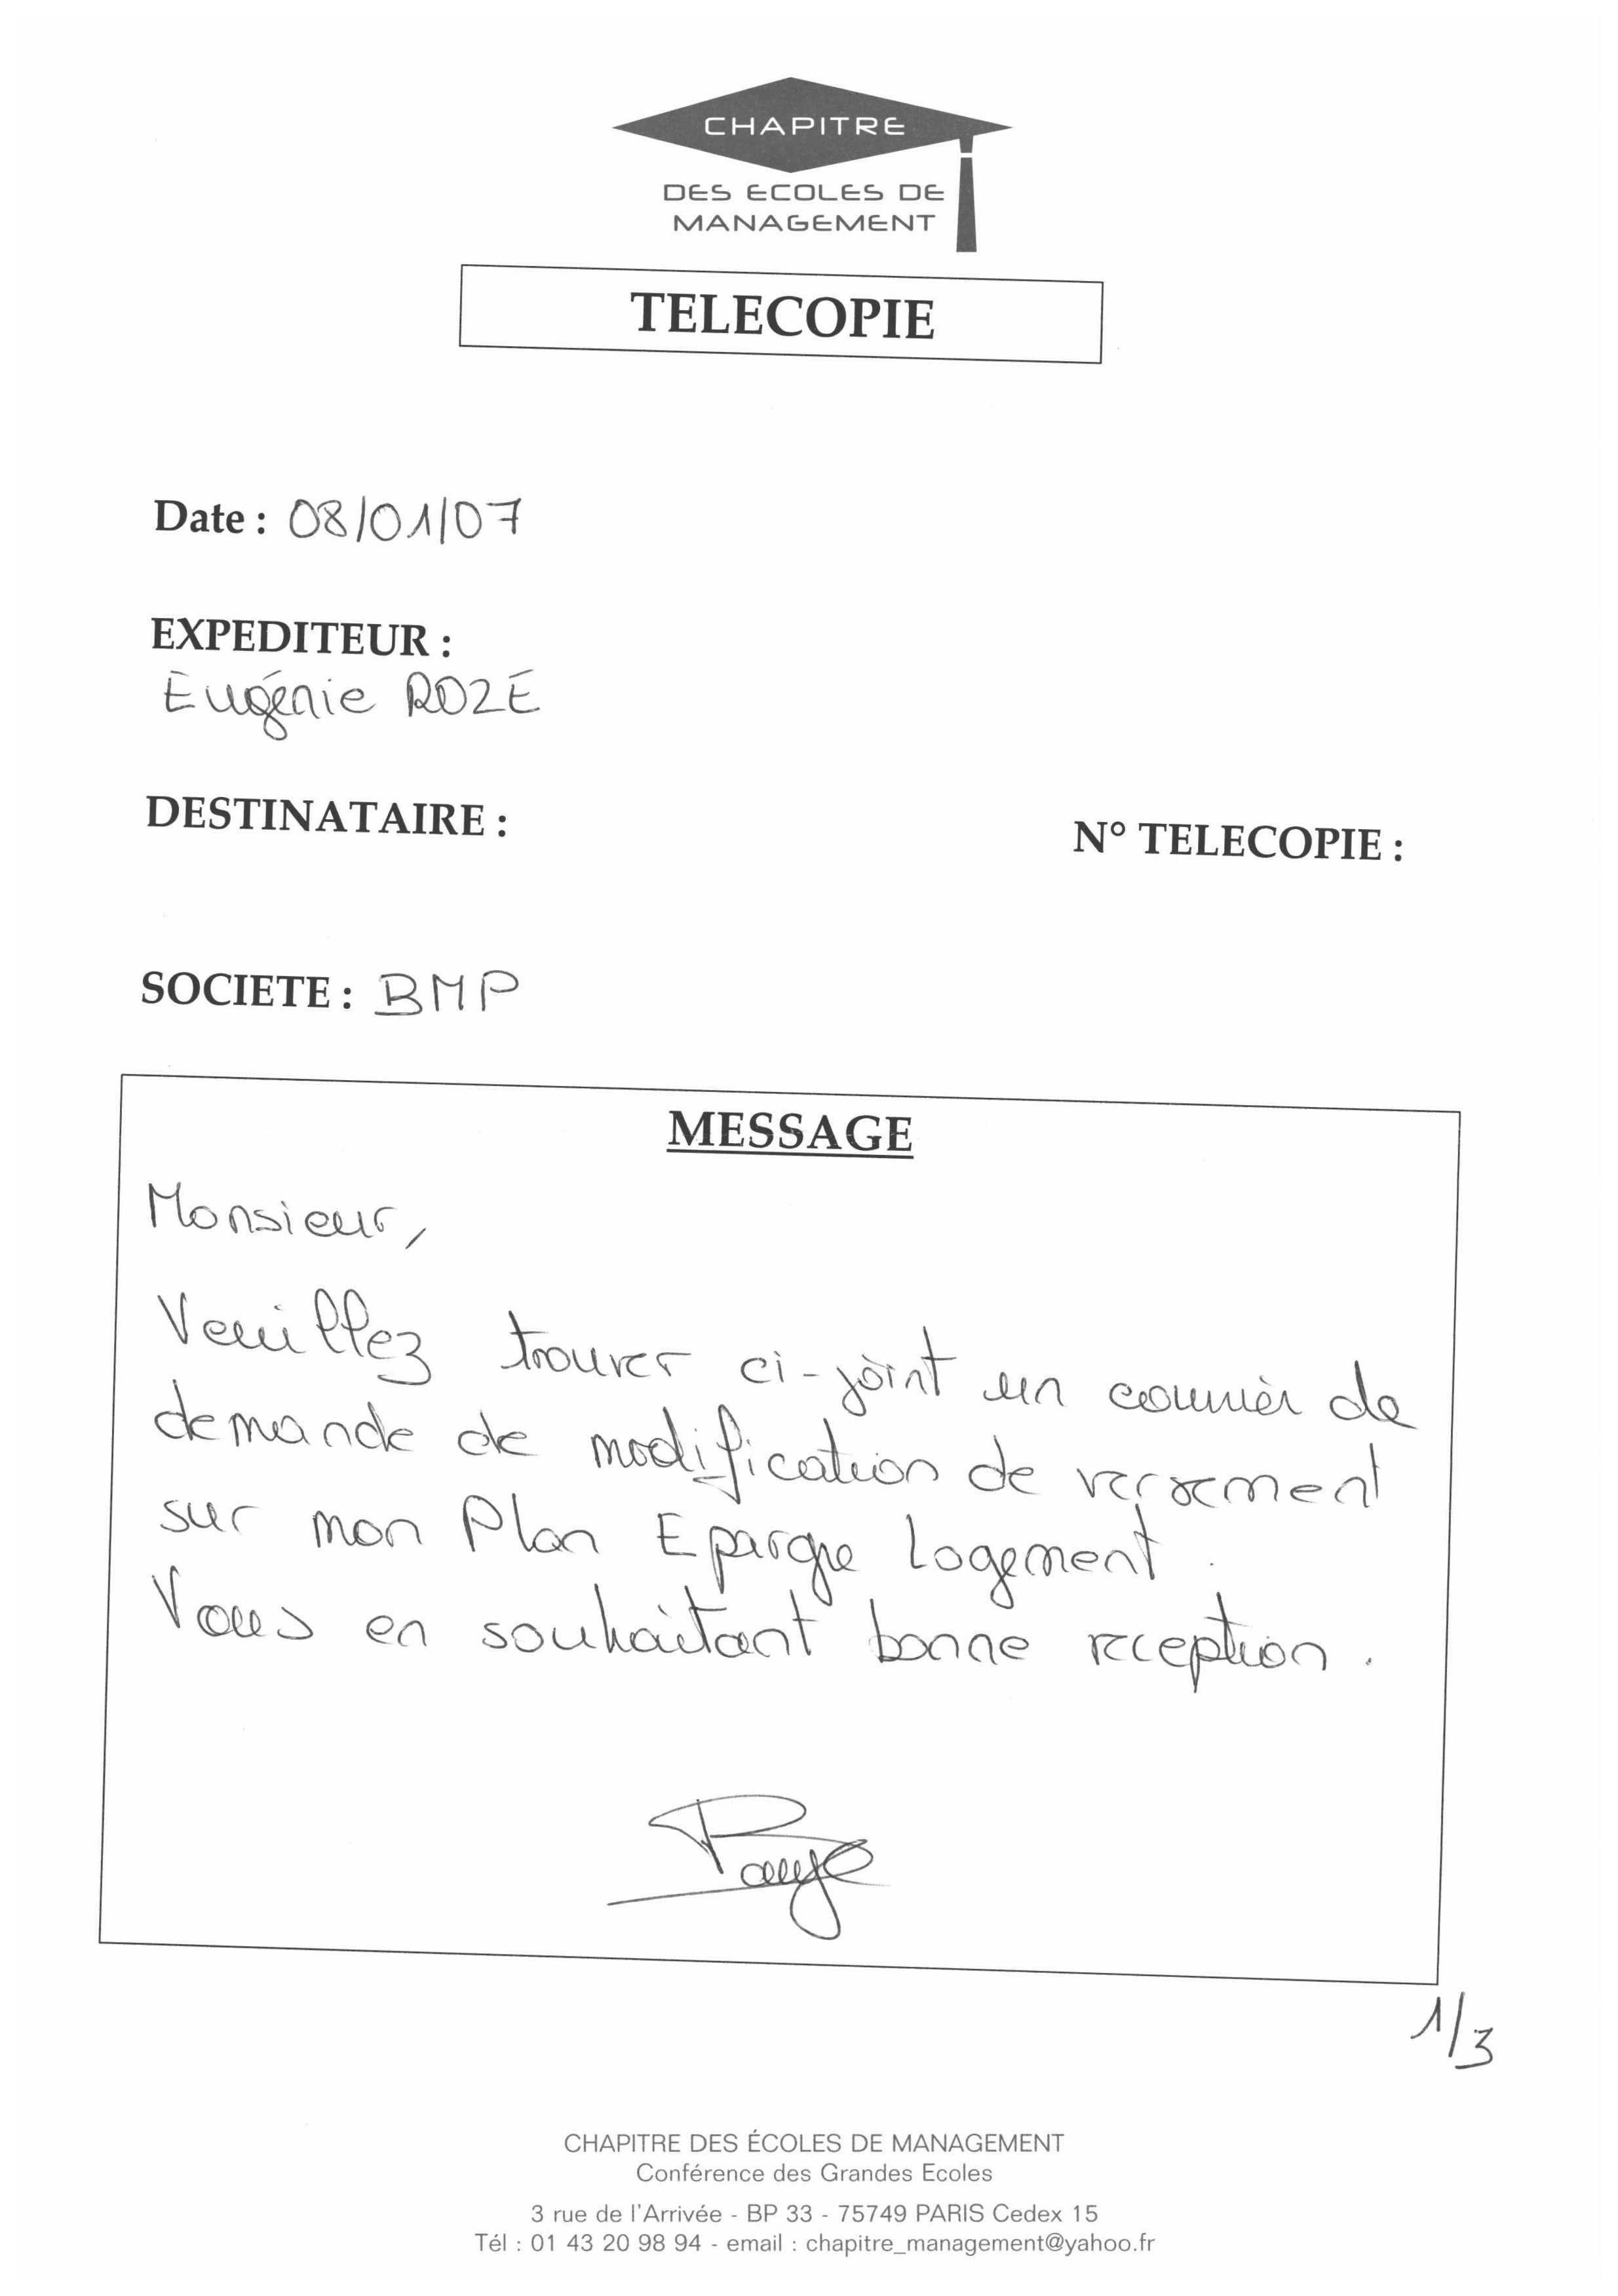 CHAPITRE
DES ECOLES DE
MANAGEMENT
TELECOPIE
Date : 08/01/07
EXPEDITEUR :
Eugénie ROZE
DESTINATAIRE :
N° TELECOPIE :
SOCIETE : BMP
MESSAGE
Monsieur,
Veuillez trouver ci-joint un courrier de
demande de modification de versement
sur mon Plan Epargne Logement.
Vous en souhaitant bonne reception.
1/3
CHAPITRE DES ÉCOLES DE MANAGEMENT
Conférence des Grandes Ecoles
3 rue de l'Arrivée - BP 33 - 75749 PARIS Cedex 15
Tél : 01 43 20 98 94 - email : chapitre_management@yahoo.fr